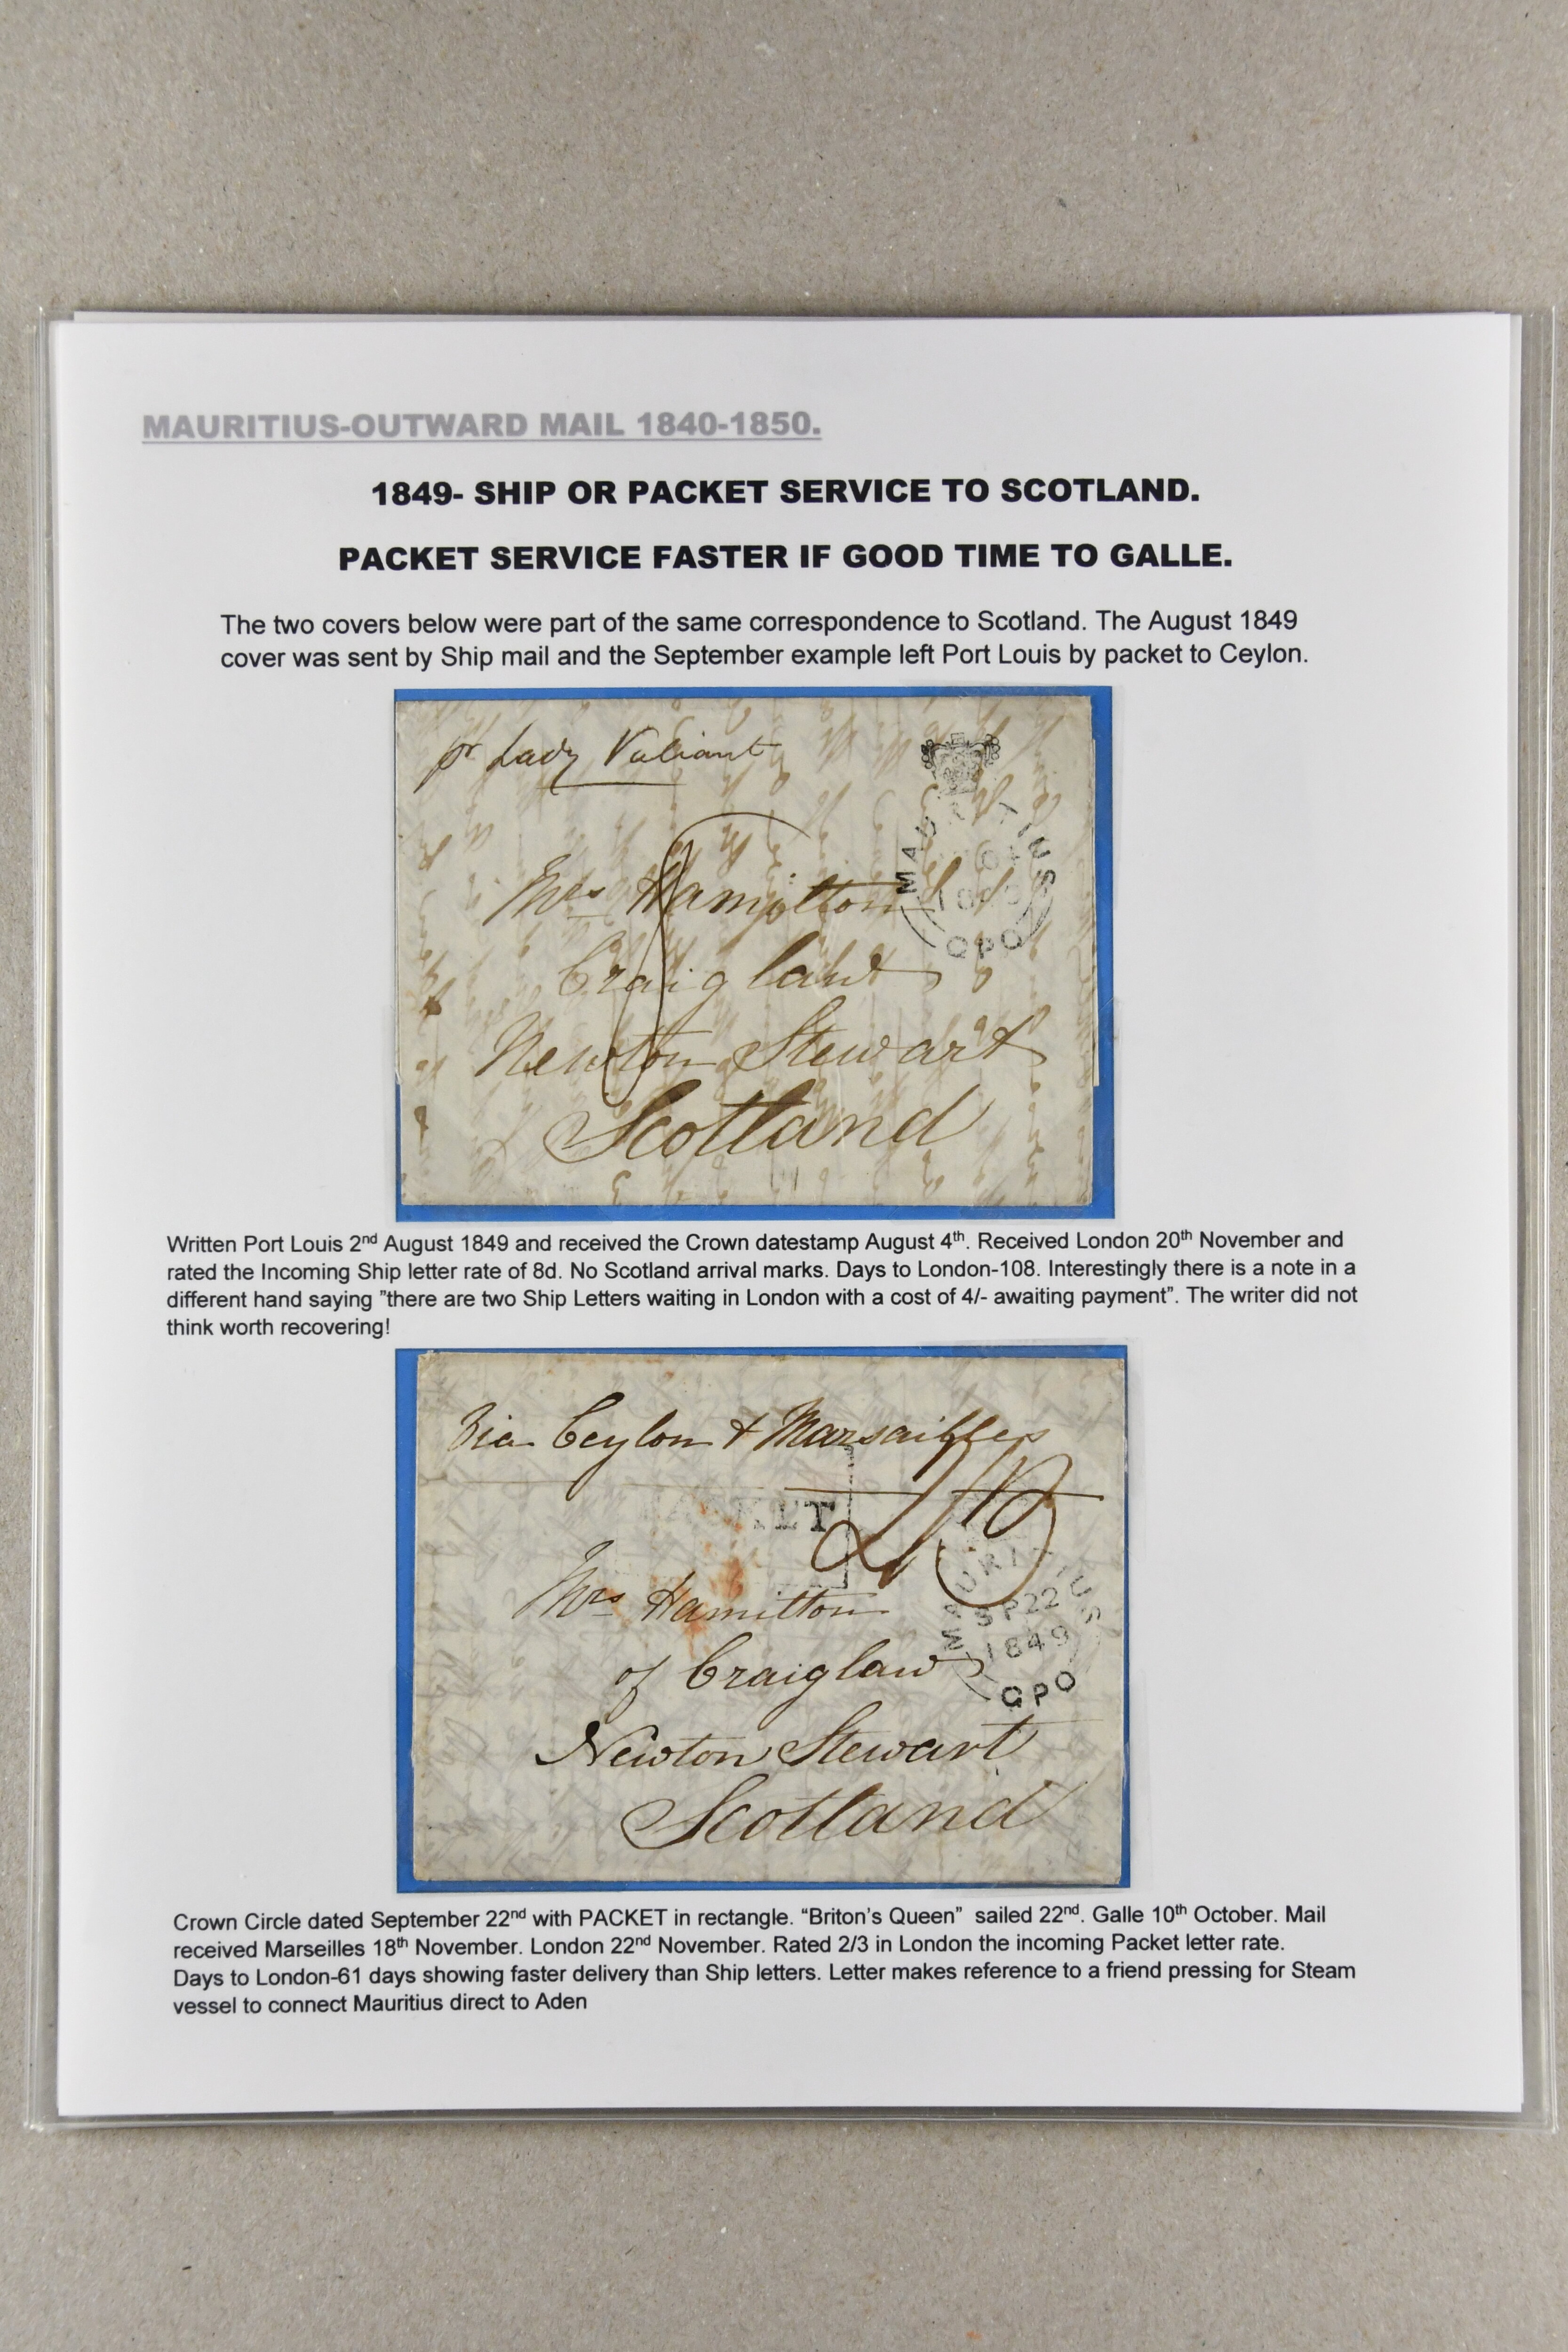 MAURITIUS-OUTWARD MAIL 1840-1850.
1849- SHIP OR PACKET SERVICE TO SCOTLAND.
PACKET SERVICE FASTER IF GOOD TIME TO GALLE.
The two covers below were part of the same correspondence to Scotland. The August 1849
cover was sent by Ship mail and the September example left Port Louis by packet to Ceylon.
pr Lady Valiant
MAURITIUS
GPO
Mrs Hamilton
Craiglaw
Newton Stewart
Scotland
Written Port Louis 2nd August 1849 and received the Crown datestamp August 4th. Received London 20th November and
rated the Incoming Ship letter rate of 8d. No Scotland arrival marks. Days to London-108. Interestingly there is a note in a
different hand saying ”there are two Ship Letters waiting in London with a cost of 4/- awaiting payment”. The writer did not
think worth recovering!
Via Ceylon & Marsailles
PACKET
MAURITIUS
SP 22
1849
GPO
Mrs Hamilton
of Craiglaw
Newton Stewart
Scotland
Crown Circle dated September 22nd with PACKET in rectangle. “Briton’s Queen” sailed 22nd. Galle 10th October. Mail
received Marseilles 18th November. London 22nd November. Rated 2/3 in London the incoming Packet letter rate.
Days to London-61 days showing faster delivery than Ship letters. Letter makes reference to a friend pressing for Steam
vessel to connect Mauritius direct to Aden